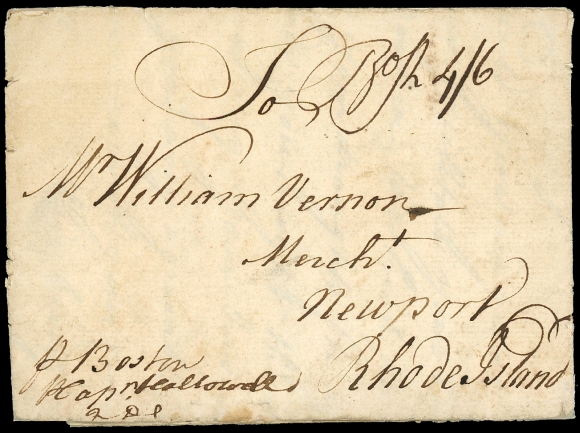 To Bosn 4/6
Mr William Vernon
Mercht.
Newport
Rhode Island
p Boston
Capn Hallowell
2 De